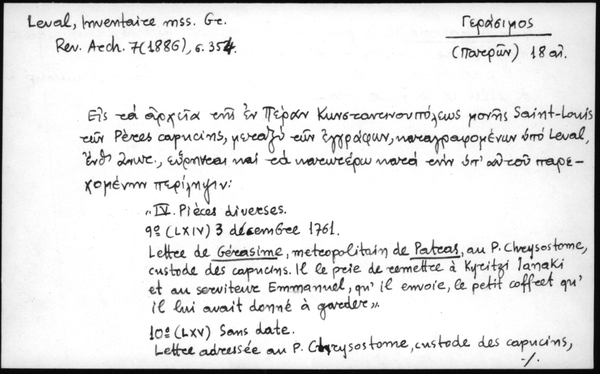 Leval, Inventaire mss. Gr.
Rev. Arch. 7(1886), σ. 354.
Γεράσιμος
(Πατρῶν) 18 αἰ.
Εἰς τὰ ἀρχεῖα τῆς ἐν Πέραν Κωνσταντινουπόλεως μονῆς Saint-Louis
τῶν Pères capucins, μεταξὺ τῶν ἐγγράφων, καταγραφομένων ὑπὸ Leval,
ἔνθ' ἀνωτ., εὕρηνται καὶ τὰ κατωτέρω κατὰ τὴν ὑπ' αὐτοῦ παρε-
χομένην περίληψιν:
"IV. Pièces diverses.
9º (LXIV) 3 décembre 1761.
Lettre de Gérasime, metropolitain de Patras, au P. Chrysostome,
custode des capucins. Il le prie de remettre à Kyritzi Ianaki
et au serviteur Emmanuel, qu' il envoie, le petit coffret qu'
il lui avait donné à garder".
10º (LXV) Sans date.
Lettre adressée au P. Chrysostome, custode des capucins,
·/.